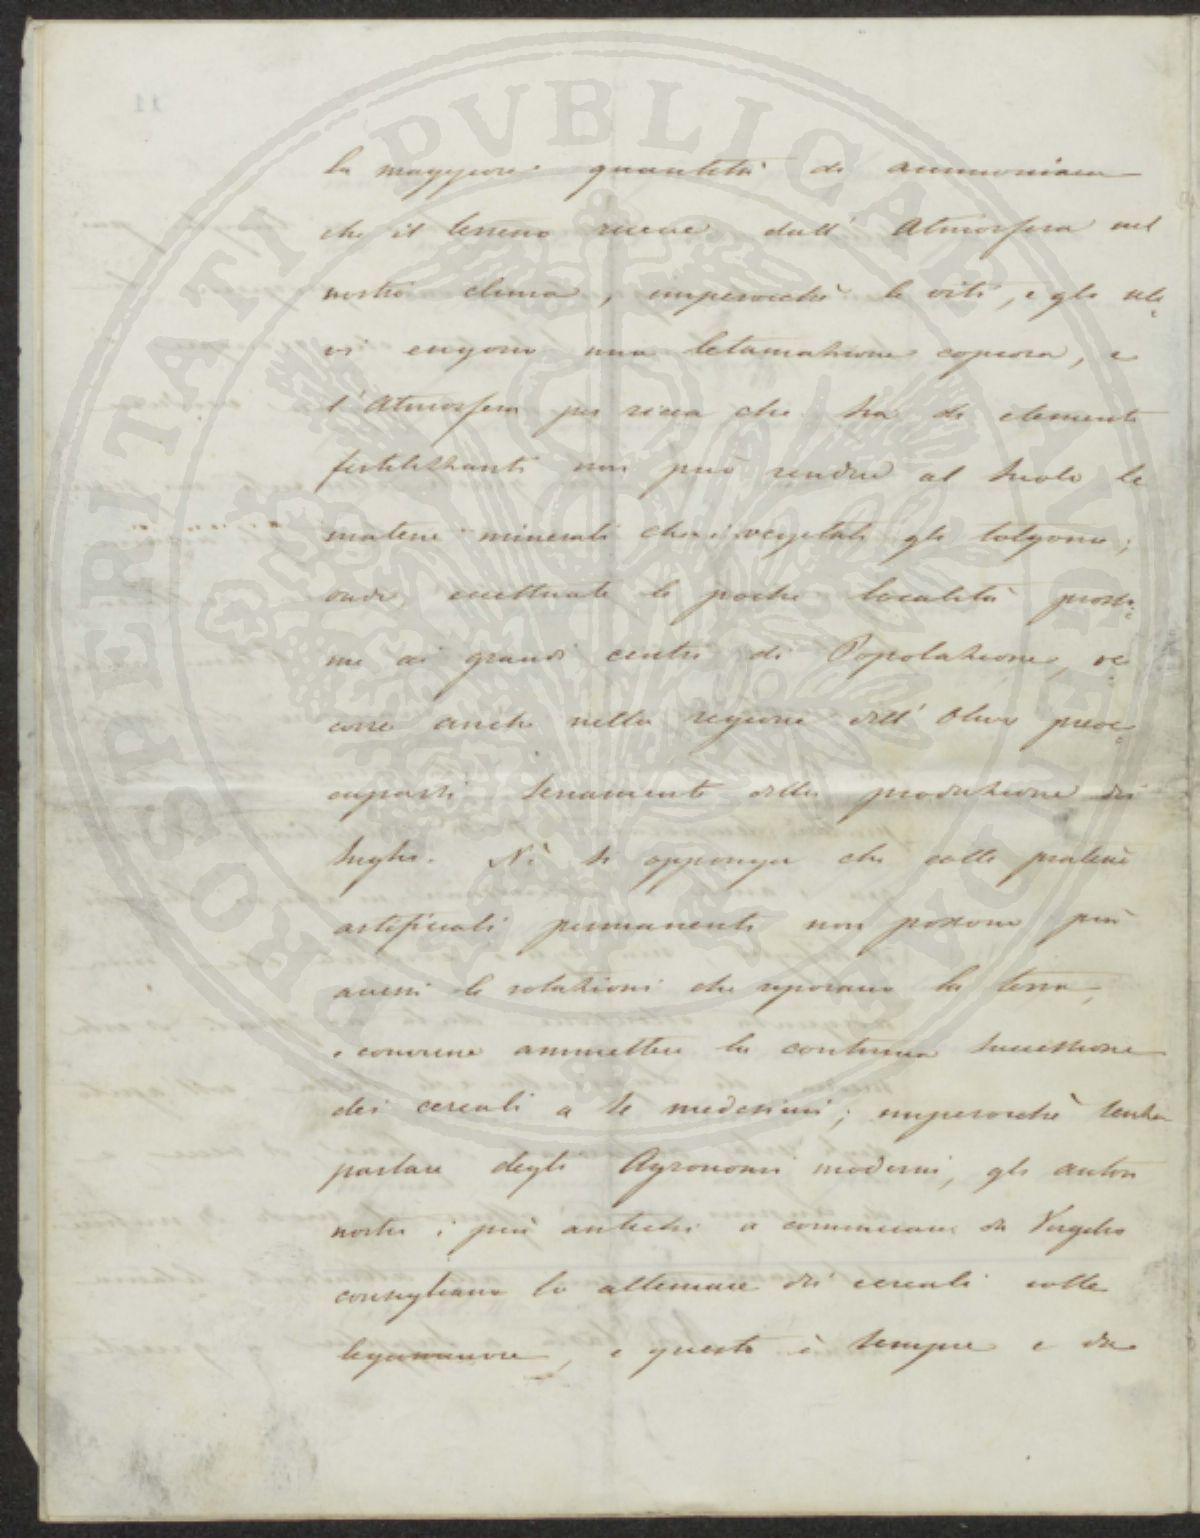 PROSPERITATI PUBLICAE AUGENDAE
la maggiore quantità di ammoniaca
che il terreno riceve dall' Atmosfera nel
nostro clima, imperocchè le viti, e gli uli=
vi esigono una letamazione copiosa, e
l'Atmosfera per ricca che sia di elementi
fertilizzanti non può rendere al suolo le
materie minerali che i vegetali gli tolgono;
onde, eccettuate le poche località prossi=
me ai grandi centri di Popolazione, oc=
corre anche nella regione dell' Olivo preoc=
cuparsi seriamente della produzione dei
sughi. Nè si opponga che colle praterie
artificiali permanenti non possono più
aversi le rotazioni che riposano la terra,
e conviene ammettere la continua successione
dei cereali a se medesimi; imperocchè senza
parlare degli Agronomi moderni, gli autori
nostri i più antichi a cominciare da Virgilio
consigliano lo alternare dei cereali colle
leguminose, e questo è sempre e da